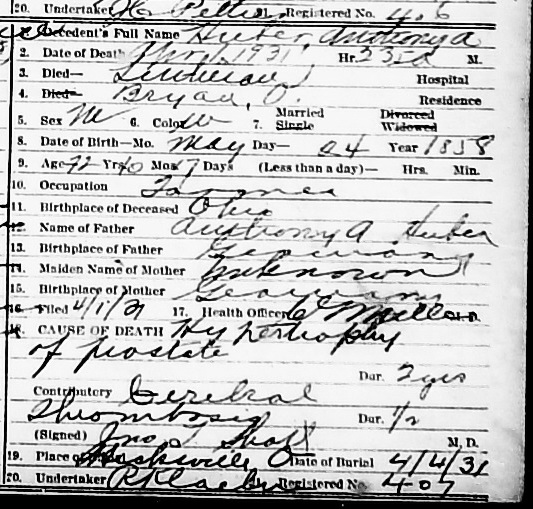 20. Undertaker Registered No. 406
Decedent's Full Name Huber, Anthony A
2. Date of Death Apr. 1, 1931, Hr. M.
3. Died— Hospital
4. Died— Bryan, O. Residence
5. Sex M 6. Color W 7. Married Single Divorced Widowed
8. Date of Birth—Mo. May Day— 24 Year 1858
9. Age 72 Yrs 10 Mos 7 Days (Less than a day)— Hrs. Min.
10. Occupation Farmer
11. Birthplace of Deceased Ohio
12. Name of Father Anthony A Huber
13. Birthplace of Father Germany
14. Maiden Name of Mother Unknown
15. Birthplace of Mother Germany
16. Filed 4/1/31 17. Health Officer M.D.
18. CAUSE OF DEATH Hypertrophy
of prostate
Dur. 2 yrs
Contributory Cerebral
Thrombosis Dur. 1/2
(Signed) Jno. M. D.
19. Place of Hicksville O Date of Burial 4/4/31
20. Undertaker Registered No. 407